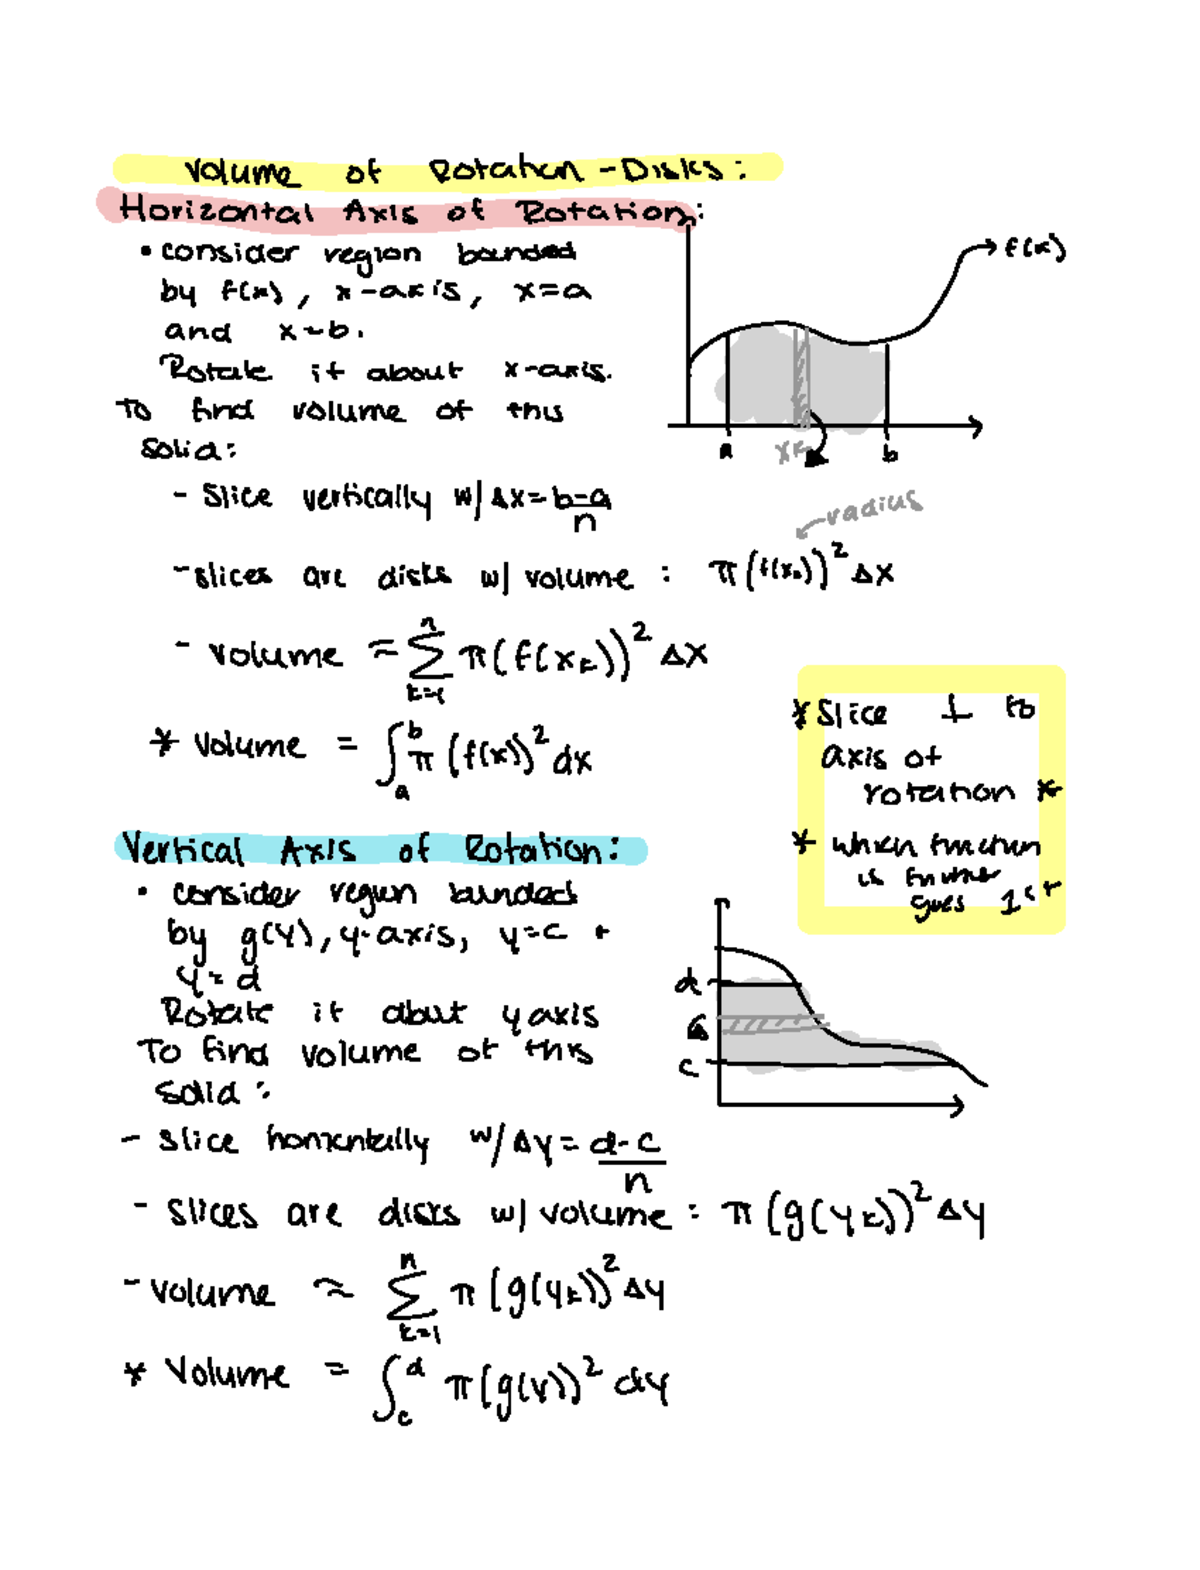 Volume of Rotation - Disks:
Horizontal Axis of Rotation:
• consider region bounded
by f(x), x-axis, x=a
and x=b.
Rotate it about x-axis.
To find volume of this
solid:
→ f(x)
a xk b
- Slice vertically w/ Δx = b-a
n
radius
- slices are disks w/ volume : π(f(xk))² Δx
- volume ≈ n∑k=1 π(f(xk))² Δx
* Volume = ∫ab π(f(x))² dx
* Slice ⊥ to
axis of
rotation *
* which function
is further
goes 1st
Vertical Axis of Rotation:
• consider region bounded
by g(y), y-axis, y=c +
y=d
Rotate it about y axis
To find volume of this
solid:
d
c
- slice horizontally w/ Δy = d-c
n
- slices are disks w/ volume : π(g(yk))² Δy
- volume ≈ n∑k=1 π(g(yk))² Δy
* Volume = ∫cd π(g(y))² dy